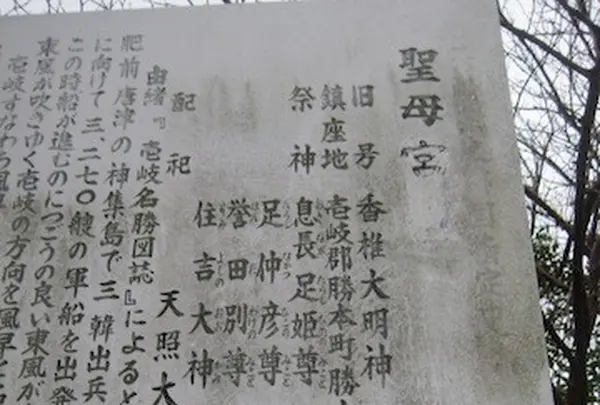 聖母宮
旧号 香椎大明神
鎮座地 壱岐郡勝本町勝
祭神 息長足姫尊
足仲彦尊
誉田別尊
住吉大神
配祀 天照大
由緒『壱岐名勝図誌』によると
肥前唐津の神集島で三韓出兵
に向けて三、二七〇艘の軍船を出発
この時船が進むのにつごうの良い東風が
東風が吹きゆく壱岐の方向を風早と
壱岐すなわち風